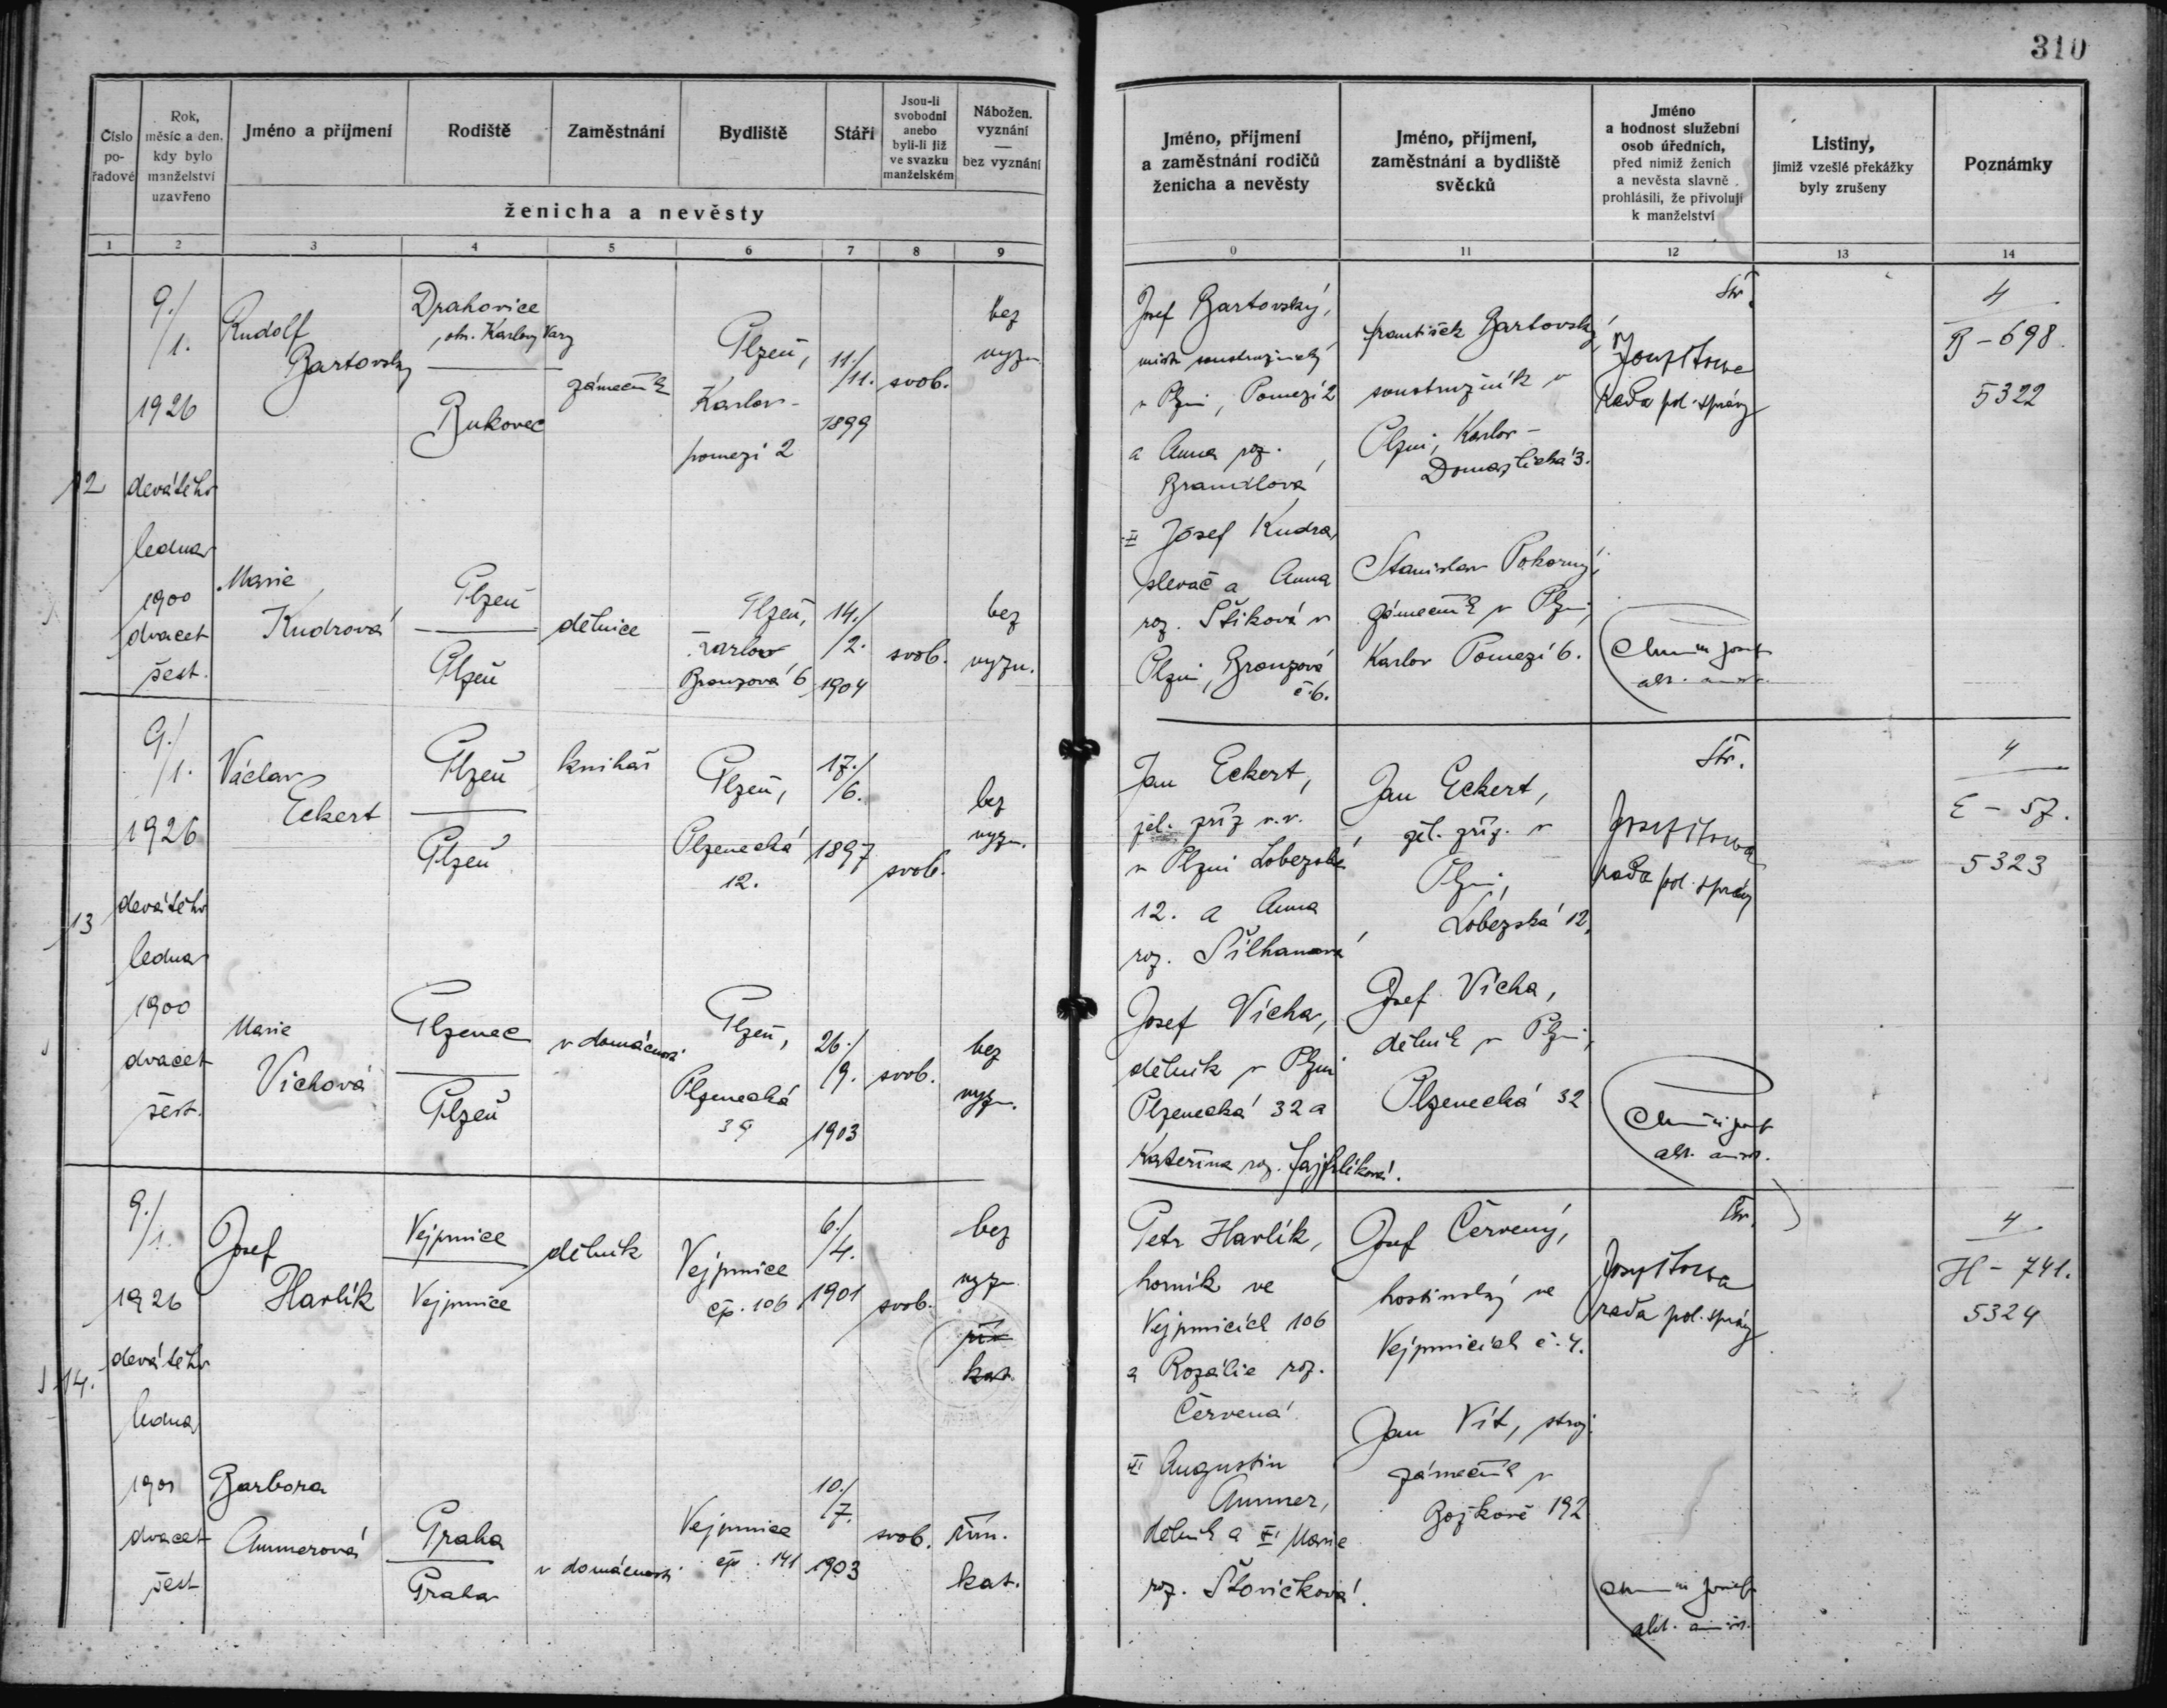 310
Číslo po-řadové
Rok, měsíc a den, kdy bylo manželství uzavřeno
Jméno a příjmení
Rodiště
Zaměstnání
Bydliště
Stáří
Jsou-li svobodni anebo byli-li již ve svazku manželském
Nábožen. vyznání — bez vyznání
ženicha a nevěsty
Jméno, příjmení a zaměstnání rodičů ženicha a nevěsty
Jméno, příjmení, zaměstnání a bydliště svědků
Jméno a hodnost služební osob úředních, před nimiž ženich a nevěsta slavně prohlásili, že přivolují k manželství
Listiny, jimiž vzešlé překážky byly zrušeny
Poznámky
1 2 3 4 5 6 7 8 9
0 11 12 13 14
12
9./1.
1926
devátého
ledna
1900
dvacet
šest.
Rudolf
Bartovský
Drahovice
, okr. Karlovy Vary
Bukovec
zámečník
Plzeň,
Karlov-
pomezí 2
11./11.
1899
svob.
bez
vyzn.
Marie
Kudrová
Plzeň
Plzeň
dělnice
Plzeň,
Karlov
Bronzová 6
14./2.
1904
svob.
bez
vyzn.
Josef Bartovský,
mistr soustružnický
v Plzni, Pomezí 2
a Anna roz.
Brandlová
Josef Kudra,
slevač a Anna
roz. Štiková v
Plzni, Bronzová
č. 6.
František Bartovský,
soustružník v
Plzni, Karlov-
Domažlická 3.
Stanislav Pokorný,
zámečník v Plzni,
Karlov Pomezí 6.
Str.
rada pol. správy
4
B - 698.
5322
13
9./1.
1926
devátého
ledna
1900
dvacet
šest.
Václav
Eckert
Plzeň
Plzeň
knihař
Plzeň,
Plzenecká
12.
17./6.
1897
svob.
bez
vyzn.
Marie
Vichová
Plzenec
Plzeň
v domácnosti
Plzeň,
Plzenecká
39
26./9.
1903
svob.
bez
vyzn.
Jan Eckert,
žel. zříz v.v.
v Plzni Lobezská
12. a Anna
roz. Šilhanová
Josef Vícha,
dělník v Plzni
Plzenecká 32 a
Kateřina roz.
Jan Eckert,
žel. zříz. v
Plzni,
Lobezská 12,
Josef Vícha,
dělník v Plzni,
Plzenecká 32
Str.
rada pol. správy
4
E - 57.
5323
14.
9./1.
1926
devátého
ledna
1900
dvacet
šest
Josef
Havlík
Vejprnice
Vejprnice
dělník
Vejprnice
čp. 106
6./4.
1901
svob.
bez
vyzn.
řím
kat.
Barbora
Ammerová
Praha
Praha
v domácnosti
Vejprnice
čp. 141
10./7.
1903
svob.
řím.
kat.
Petr Havlík,
horník ve
Vejprnicích 106
a Rozálie roz.
Červená
Augustin
Ammer,
dělník a Marie
roz. Štovičková.
Josef Červený,
hostinský ve
Vejprnicích č. 4.
Jan Vít, stroj.
zámečník v
Božkově 192
Str.
rada pol. správy
4
H - 741.
5324